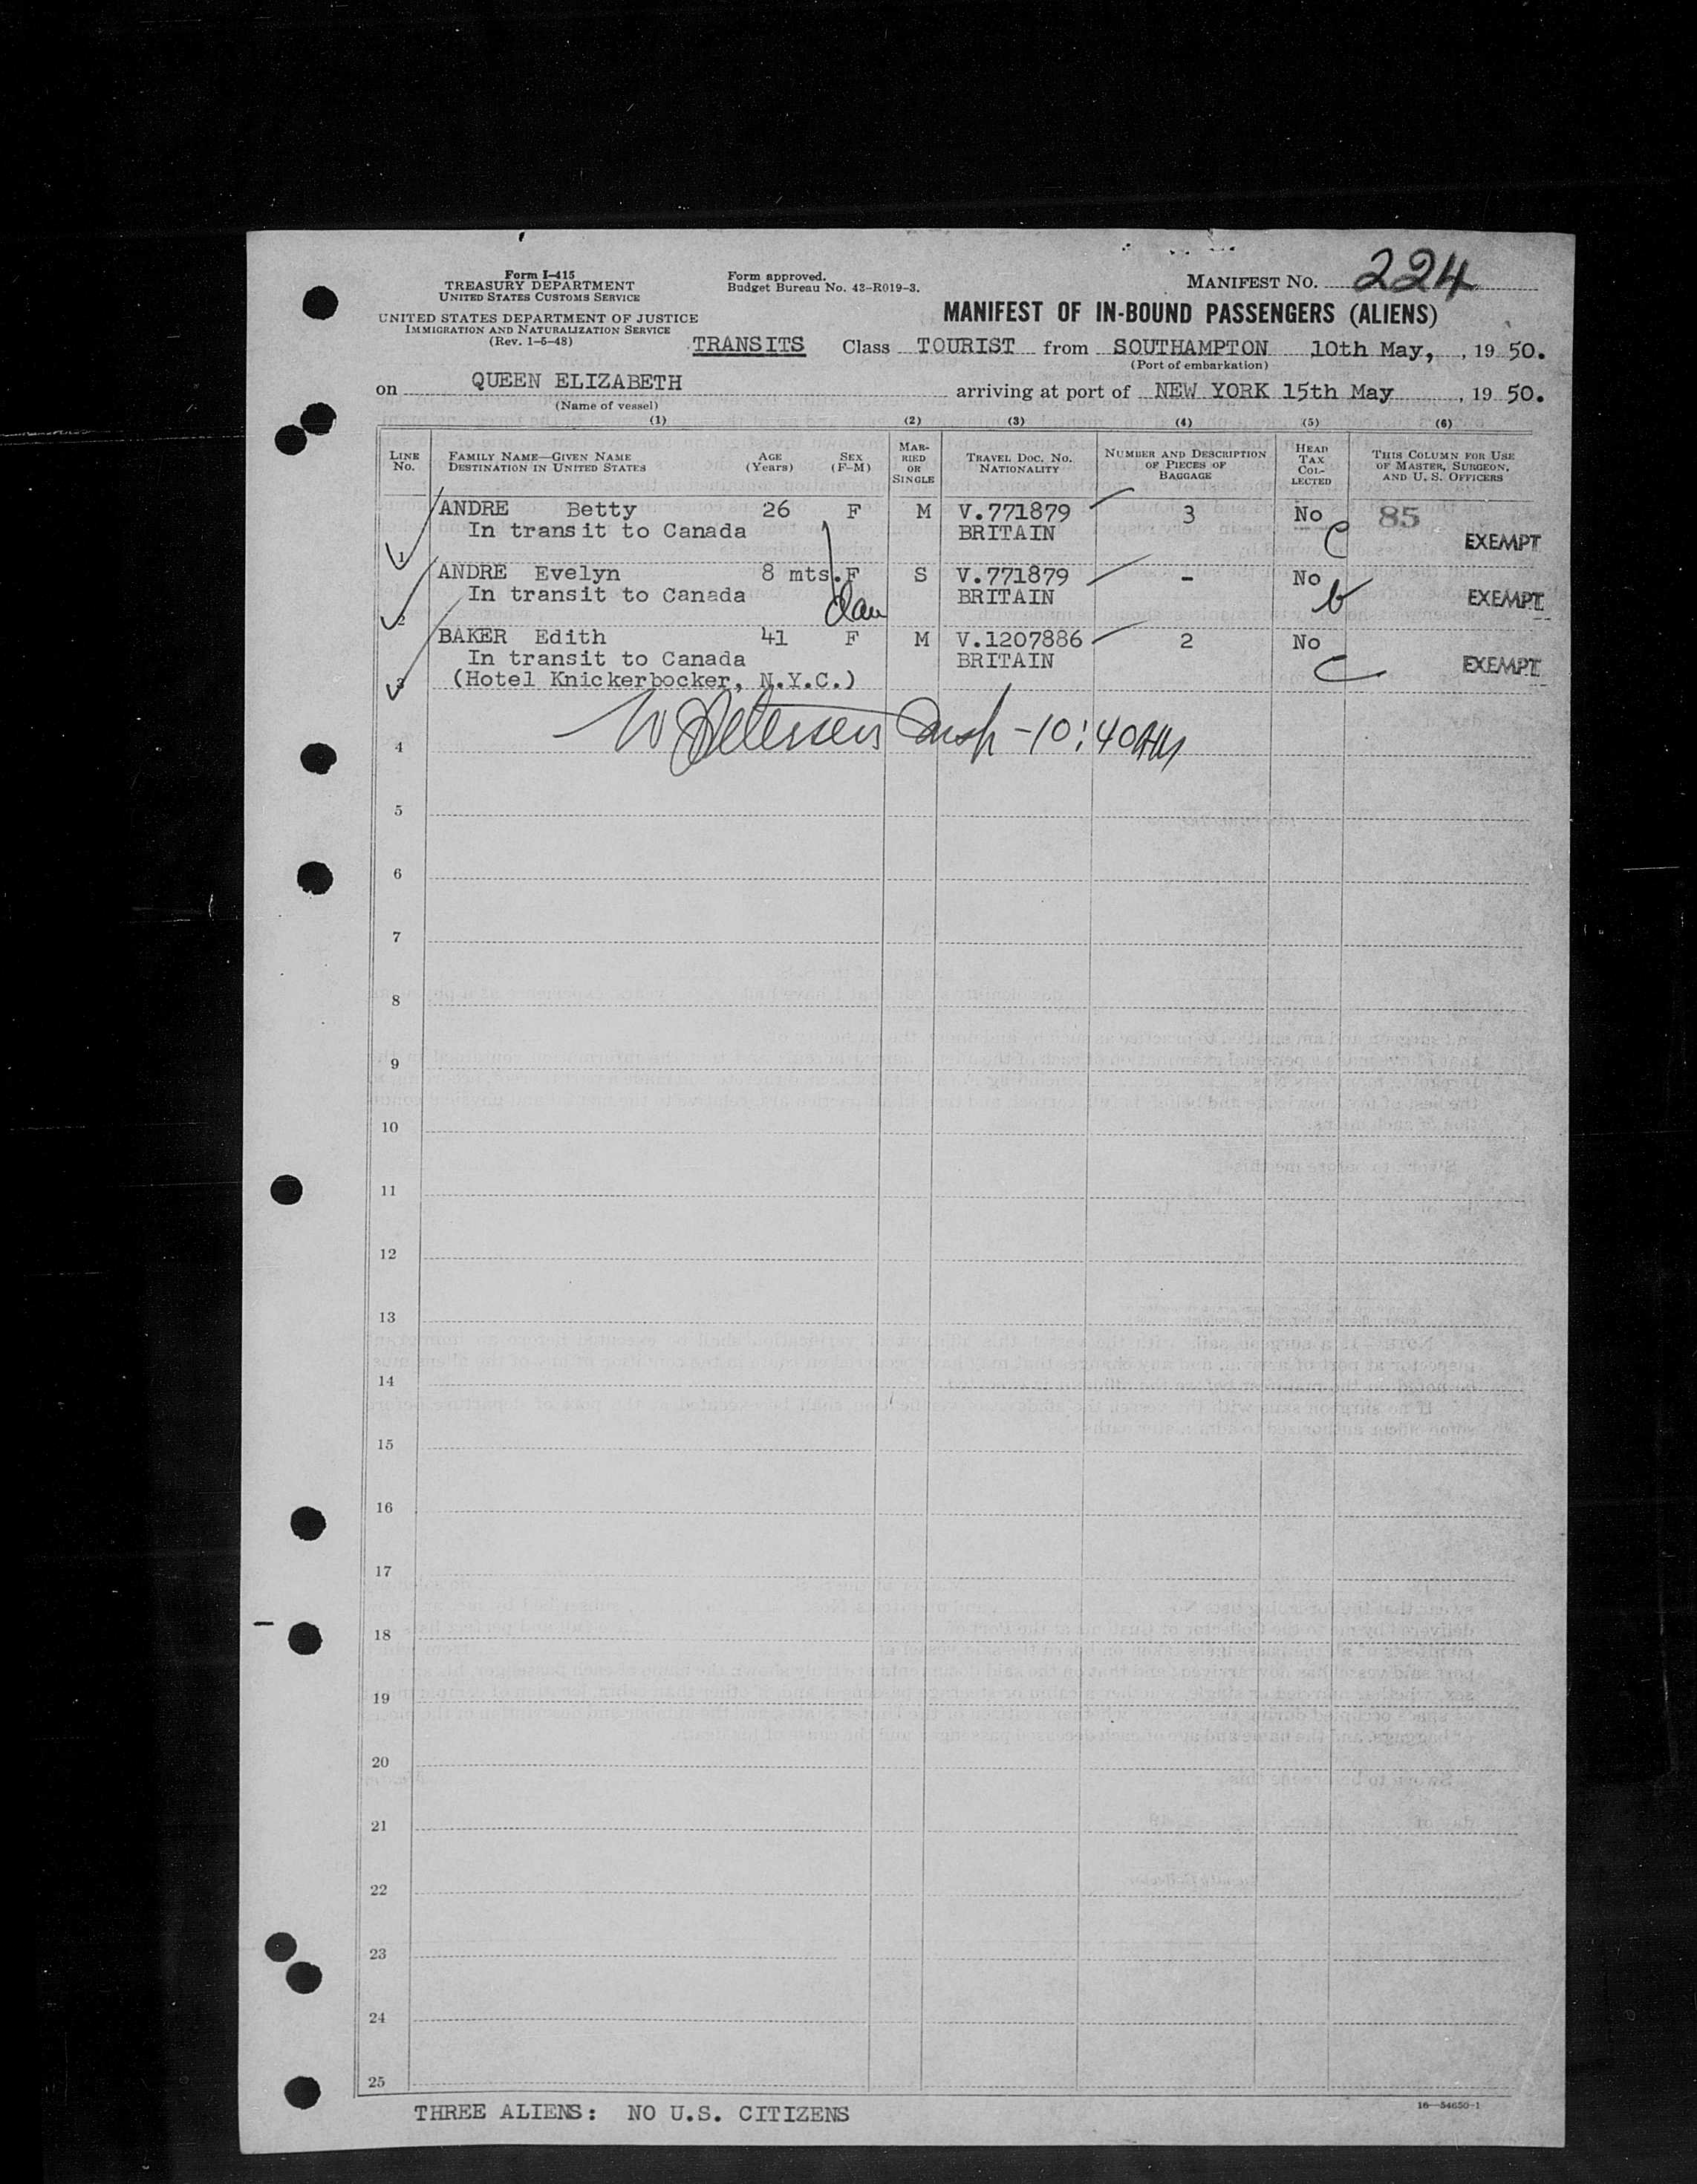 Form I-415
TREASURY DEPARTMENT
UNITED STATES CUSTOMS SERVICE
UNITED STATES DEPARTMENT OF JUSTICE
IMMIGRATION AND NATURALIZATION SERVICE
(Rev. 1-5-48)
Form approved.
Budget Bureau No. 43-R019-3.
MANIFEST NO. 224
MANIFEST OF IN-BOUND PASSENGERS (ALIENS)
TRANSITS Class TOURIST from SOUTHAMPTON 10th May, , 19 50.
(Port of embarkation)
on QUEEN ELIZABETH arriving at port of NEW YORK 15th May , 19 50.
(Name of vessel)
(1) (2) (3) (4) (5) (6)
LINE No. FAMILY NAME—GIVEN NAME DESTINATION IN UNITED STATES AGE (Years) SEX (F-M) MARRIED OR SINGLE TRAVEL DOC. NO. NATIONALITY NUMBER AND DESCRIPTION OF PIECES OF BAGGAGE HEAD TAX COLLECTED THIS COLUMN FOR USE OF MASTER, SURGEON, AND U. S. OFFICERS
1 ANDRE Betty 26 F M V.771879 3 No 85
In transit to Canada BRITAIN C EXEMPT
2 ANDRE Evelyn 8 mts. F S V.771879 - No
In transit to Canada BRITAIN b EXEMPT
3 BAKER Edith 41 F M V.1207886 2 No
In transit to Canada BRITAIN C EXEMPT
(Hotel Knickerbocker, N.Y.C.)
4 W Petersen Insp - 10:40 AM
5
6
7
8
9
10
11
12
13
14
15
16
17
18
19
20
21
22
23
24
25
THREE ALIENS: NO U.S. CITIZENS
16—54650-1